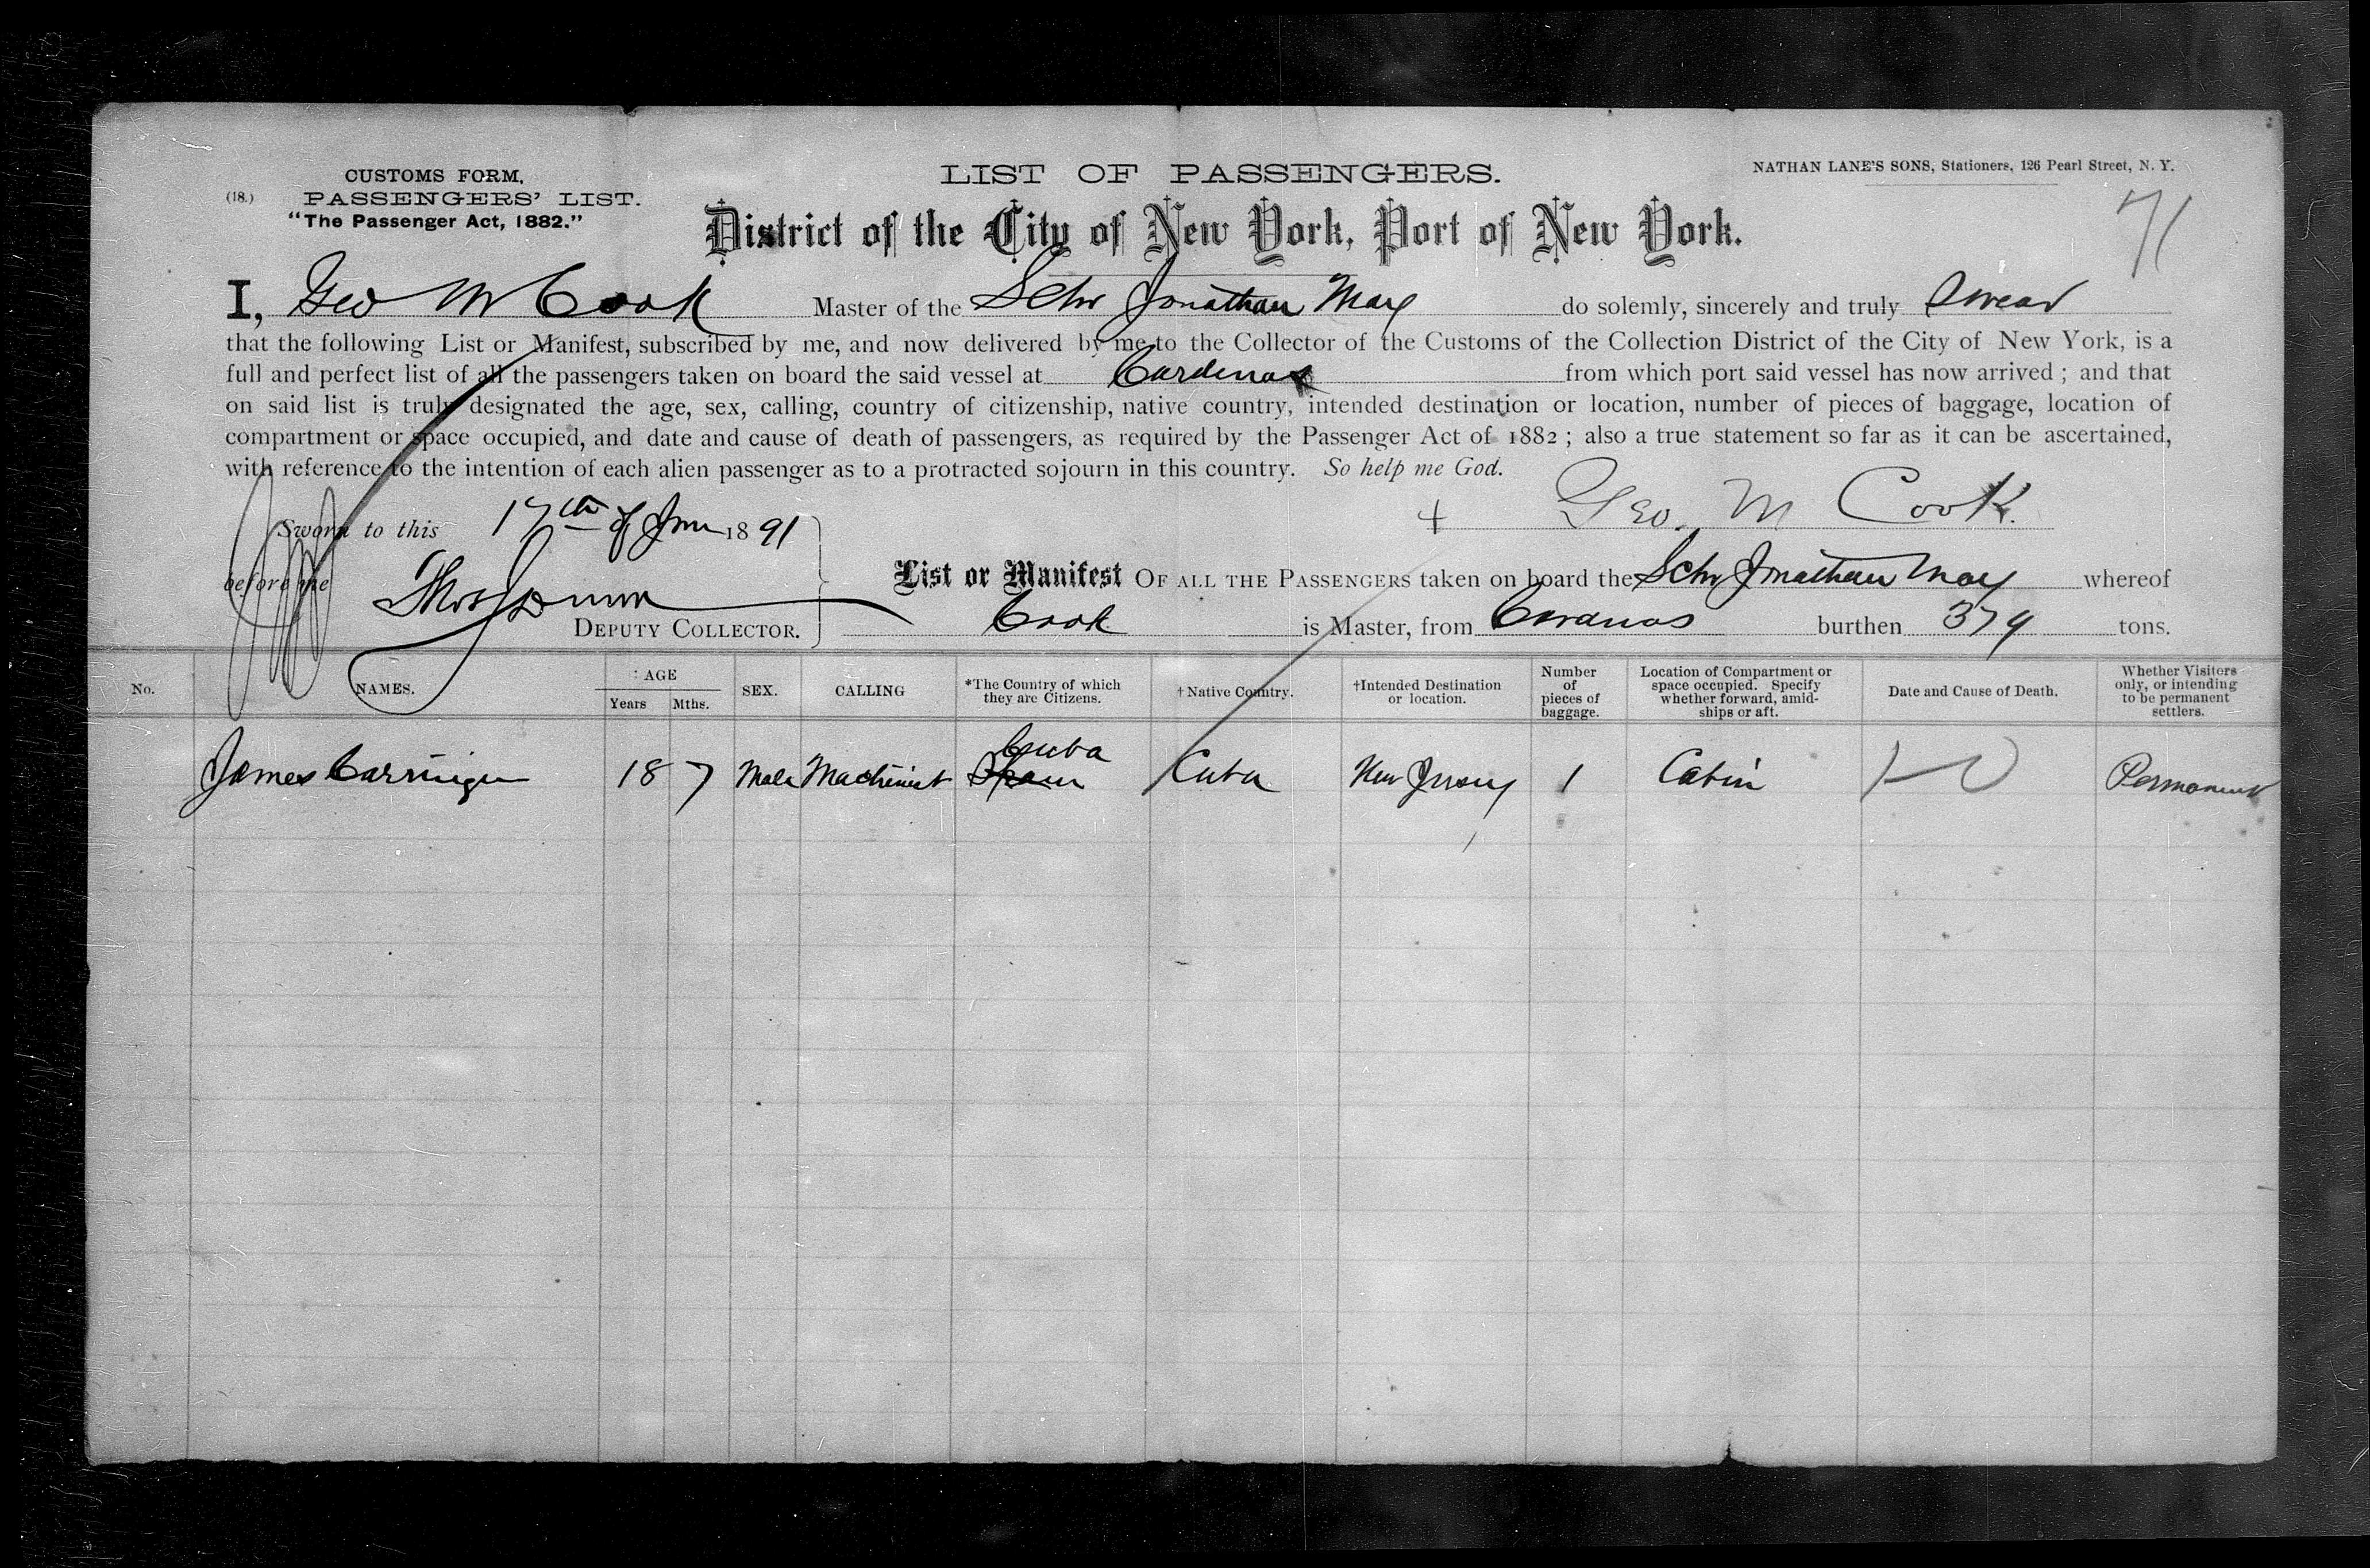 CUSTOMS FORM,
(18.) PASSENGERS' LIST.
"The Passenger Act, 1882."
LIST OF PASSENGERS.
NATHAN LANE'S SONS, Stationers, 126 Pearl Street, N. Y.
71
District of the City of New York, Port of New York.
I, Geo M Cook Master of the Schr Jonathan May do solemly, sincerely and truly swear
that the following List or Manifest, subscribed by me, and now delivered by me to the Collector of the Customs of the Collection District of the City of New York, is a
full and perfect list of all the passengers taken on board the said vessel at Cardenas from which port said vessel has now arrived ; and that
on said list is truly designated the age, sex, calling, country of citizenship, native country, intended destination or location, number of pieces of baggage, location of
compartment or space occupied, and date and cause of death of passengers, as required by the Passenger Act of 1882 ; also a true statement so far as it can be ascertained,
with reference to the intention of each alien passenger as to a protracted sojourn in this country. So help me God.
Sworn to this 17th of 1891
+ Geo. M Cook.
before me Thos
DEPUTY COLLECTOR.
List or Manifest OF ALL THE PASSENGERS taken on board the Schr Jonathan May whereof
Cook is Master, from Cardenas burthen 379 tons.
No. NAMES. AGE Years Mths. SEX. CALLING *The Country of which they are Citizens. †Native Country. †Intended Destination or location. Number of pieces of baggage. Location of Compartment or space occupied. Specify whether forward, amid-ships or aft. Date and Cause of Death. Whether Visitors only, or intending to be permanent settlers.
Cuba
James 18 7 Male Machinist Spain Cuba New Jersey 1 Cabin Permanent